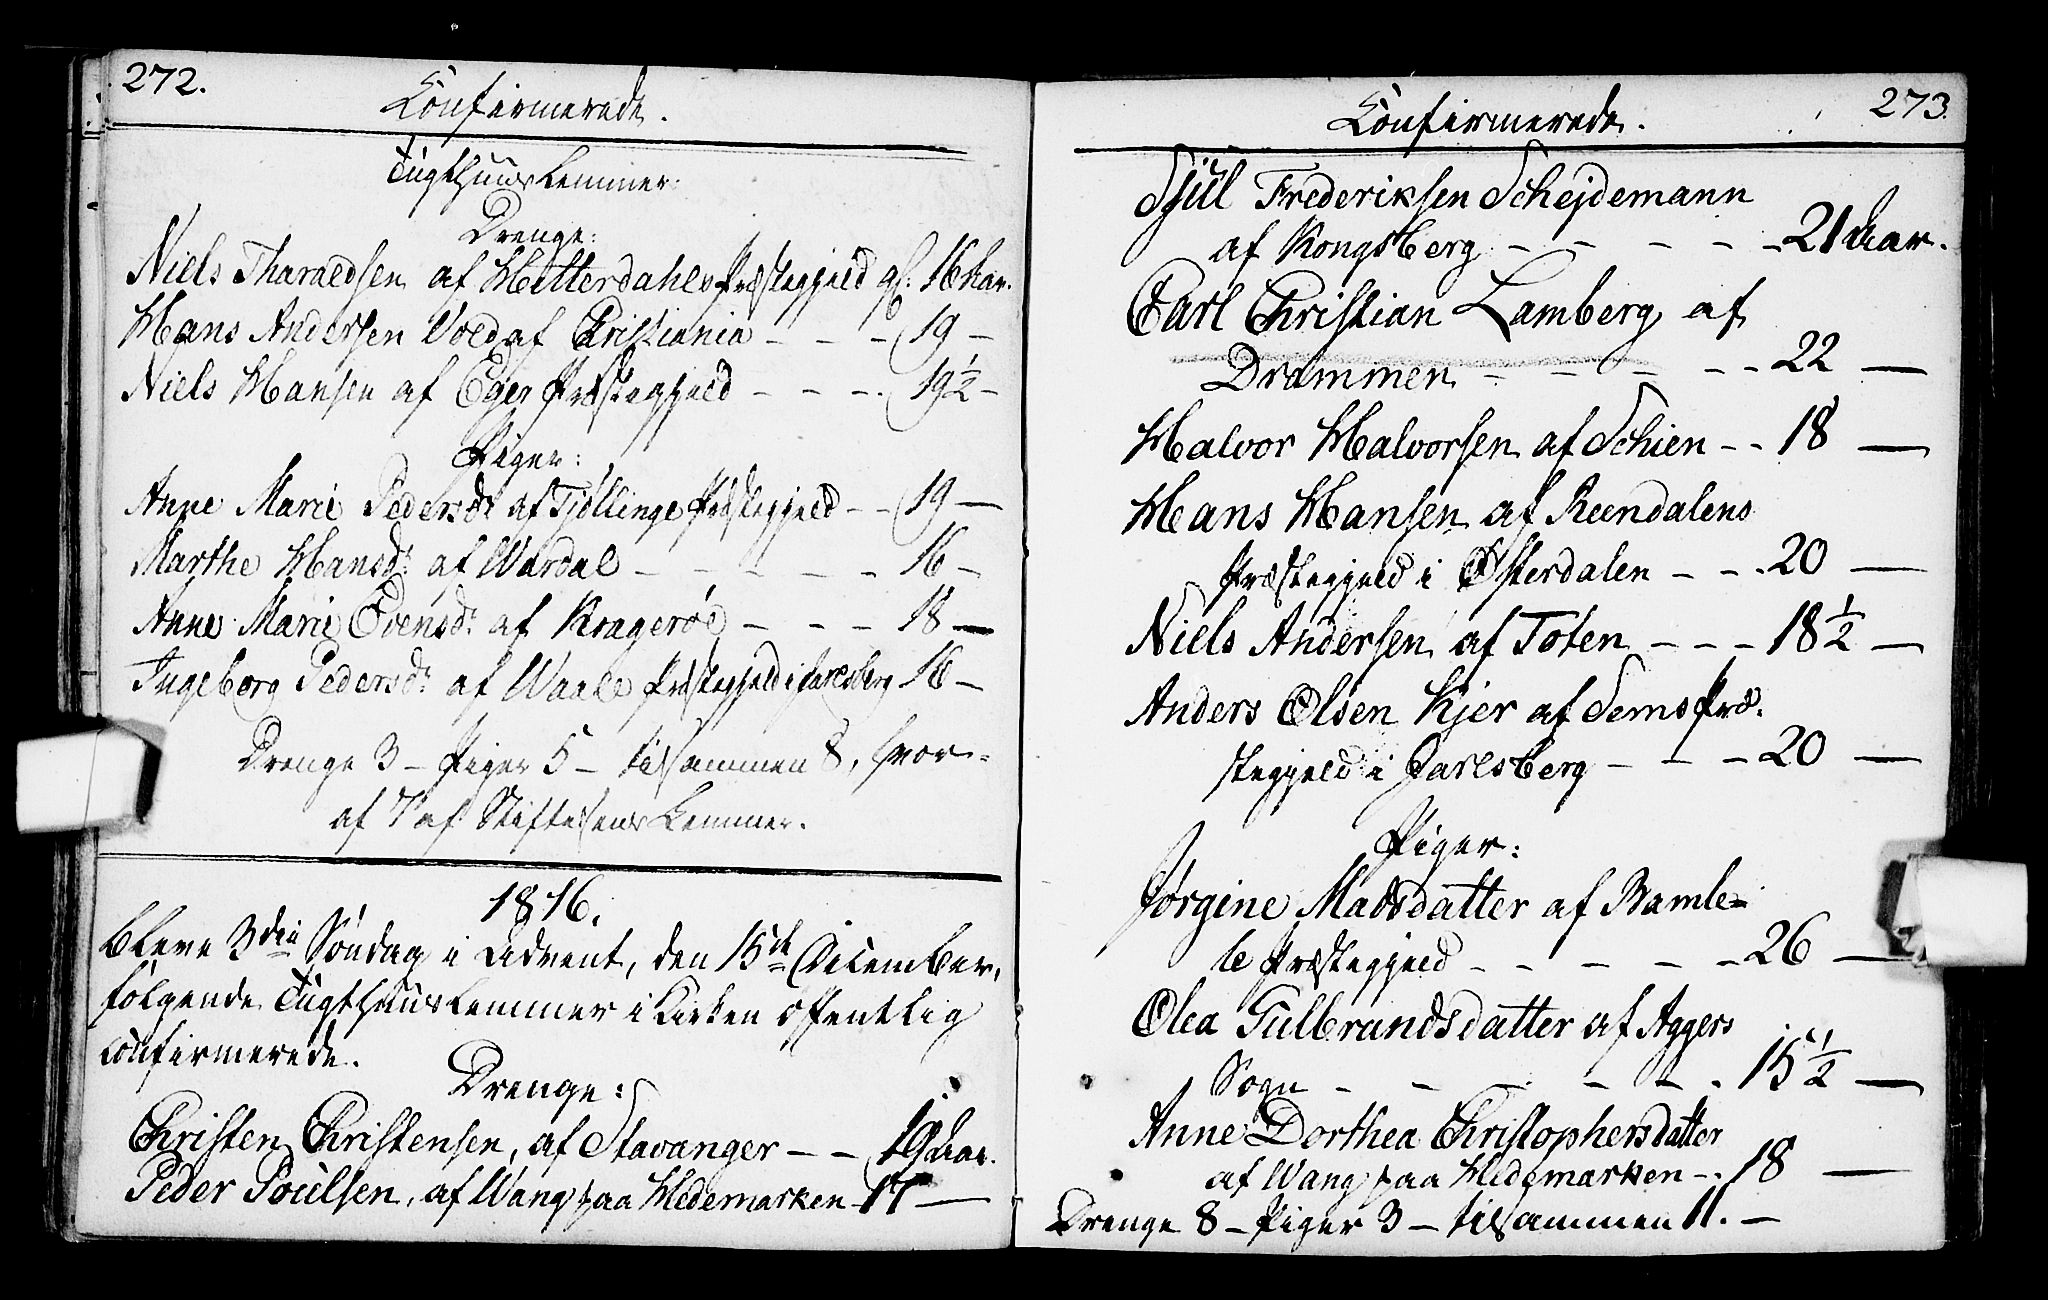 272.
Confirmerede.
Tugthuus Lemmer:
Drenge:
Niels Tharaldsen af Hitterdahls Præstegjeld gl: 16 Aar.
Hans Andersen Vold af Christiania - - - 19 -
Niels Hansen af Eger Præstegjeld - - - 19½ -
Piger:
Anne Marie Pedersdr af Tjöllinge Præstegjeld - - 19 -
Marthe Hansdr. af Wardal - - - - - 16 -
Anne Marie Evensdr. af Kragerøe - - - 18 -
Ingeborg Pedersdr. af Waale Præstegjeld i Jarlsberg 16 -
Drenge 3 - Piger 5 - tilsammen 8, hvor-
af 7 af Stiftelsens Lemmer.
1816.
Bleve 3die Søndag i Advent, den 15de December,
følgende Tugthuus Lemmer i Kirken offentlig
confirmerede.
Drenge:
Christen Christensen, af Stavanger - - 19 Aar.
Peder Poulsen, af Wang paa Hedemarken - 17 -
273.
Confirmerede.
Sjul Frederiksen Schejdemann
af Kongsberg - - - - - 21 Aar.
Carl Christian Lamberg af
Drammen - - - - - 22 -
Halvor Halvorsen af Schien - - 18 -
Hans Hansen af Reendalens
Præstegjeld i Østerdalen - - - 20 -
Niels Andersen af Toten - - - 18½ -
Anders Olsen Kjer af Sems Præ-
stegjeld i Jarlsberg - - - 20 -
Piger:
Jørgine Madsdatter af Bamle-
le Præstegjeld - - - - - 26 -
Olea Gulbrandsdatter af Aggers
Sogn - - - - - 15½ -
Anne Dorthea Christophersdatter
af Wang paa Hedemarken - - 18 -
Drenge 8 - Piger 3 - tilsammen 11. -